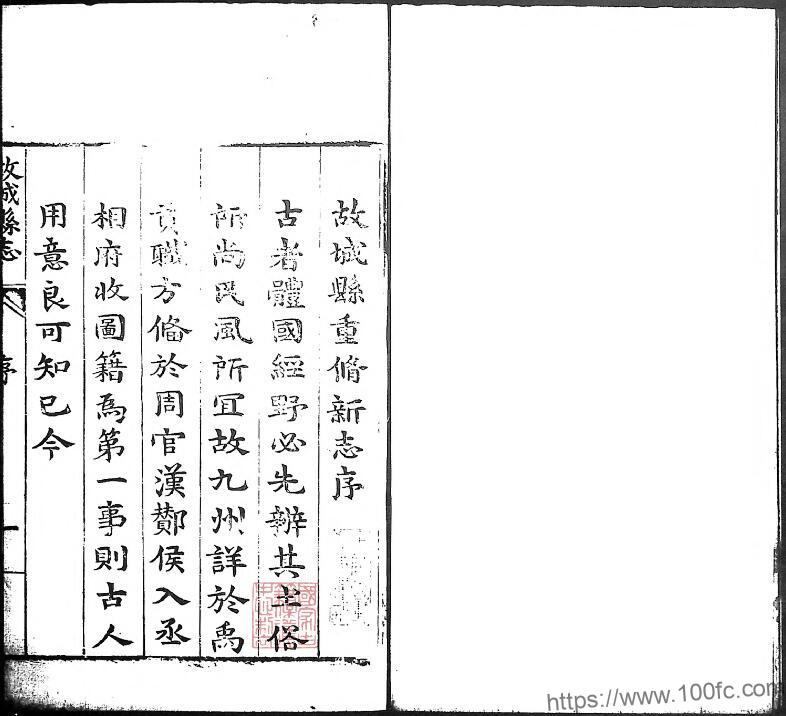 故城縣重脩新志序
古者體國經野必先辨其土俗
所尚民風所宜故九州詳於禹
貢職方備於周官漢酇侯入丞
相府收圖籍為第一事則古人
用意良可知已今
故城縣志
序
一
https://www.100fc.com